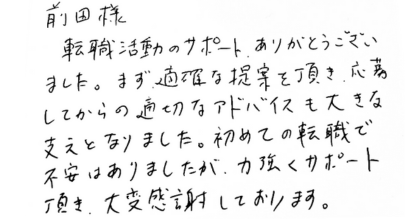 前田様
転職活動のサポート、ありがとうござい
ました。まず、適確な提案を頂き、応募
してからの適切なアドバイスも大きな
支えとなりました。初めての転職で
不安はありましたが、力強くサポート
頂き、大変感謝しております。